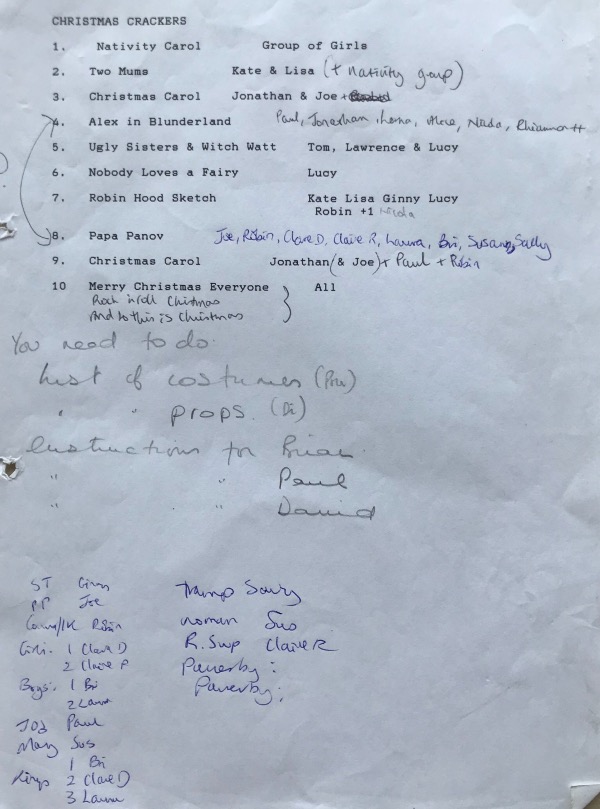 CHRISTMAS CRACKERS
1. Nativity Carol Group of Girls
2. Two Mums Kate & Lisa (+ nativity group)
3. Christmas Carol Jonathan & Joe +
4. Alex in Blunderland Paul, Jonathan, Lorna, Alexe, Nikda, Rhianna H
5. Ugly Sisters & Witch Watt Tom, Lawrence & Lucy
6. Nobody Loves a Fairy Lucy
7. Robin Hood Sketch Kate Lisa Ginny Lucy
Robin +1
8. Papa Panov Joe, Robin, Clare D, Claire R, Laura, Bri, Susan, Sally
9. Christmas Carol Jonathan (& Joe) + Paul + Robin
10 Merry Christmas Everyone All
Rock n roll Christmas
And so this is Christmas
You need to do
List of costumes (Pru)
" " props. (Di)
Instructions for Brian
" " Paul
" " David
ST Ginny
PP Joe
Robin
Girls. 1 Clare D
2 Claire R
Boys. 1 Bri
2 Laura
Jos Paul
Mary Sus
1 Bri
Kings 2 Clare D
3 Laura
Tramp Sally
woman Sus
R. Sup Claire R
Passerby:
Passerby: